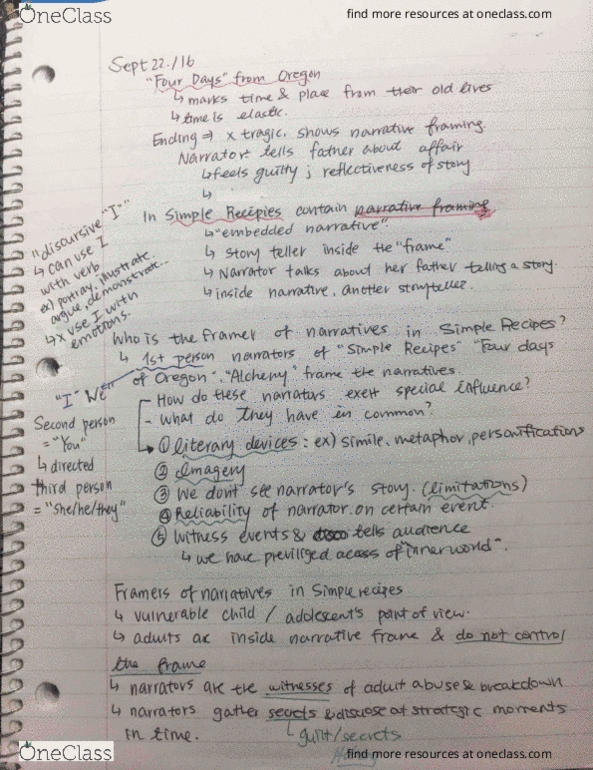 OneClass
find more resources at oneclass.com
Sept 22./16
"Four Days" from Oregon
↳ marks time & place from their old lives
↳ time is elastic.
Ending ⇒ x tragic, shows narrative framing.
Narrator tells father about affair
↳ feels guilty ; reflectiveness of story
↳
In Simple Recipies contain narrative framing
↳ "embedded narrative"
↳ story teller inside the "frame"
↳ Narrator talks about her father telling a story.
↳ inside narrative, another storyteller.
"discursive "I""
↳ can use I
with verb
ex) portray, illustrate,
argue, demonstrate...
↳ x use I with
emotions.
Who is the framer of narratives in Simple Recipes?
↳ 1st person narrators of "Simple Recipes" "Four days
of Oregon", "Alchemy" frame the narratives.
"I" We"
- How do these narrators exert special influence?
- What do they have in common?
① literary devices : ex) simile, metaphor, personifications
② Imagery
③ We don't see narrator's story. (limitations)
④ Reliability of narrator on certain event.
⑤ Witness events & tells audience
↳ we have previliged acess of "innerworld".
Second person
= "You"
↳ directed
third person
= "she/he/they"
Framers of narratives in Simple recipes
↳ vulnerable child / adolescent's point of view.
↳ adults are inside narrative frame & do not control
the frame
↳ narrators are the witnesses of adult abuse & breakdown
↳ narrators gather secrets & disclose at strategic moments
in time.
guilt/secrets
OneClass
find more resources at oneclass.com